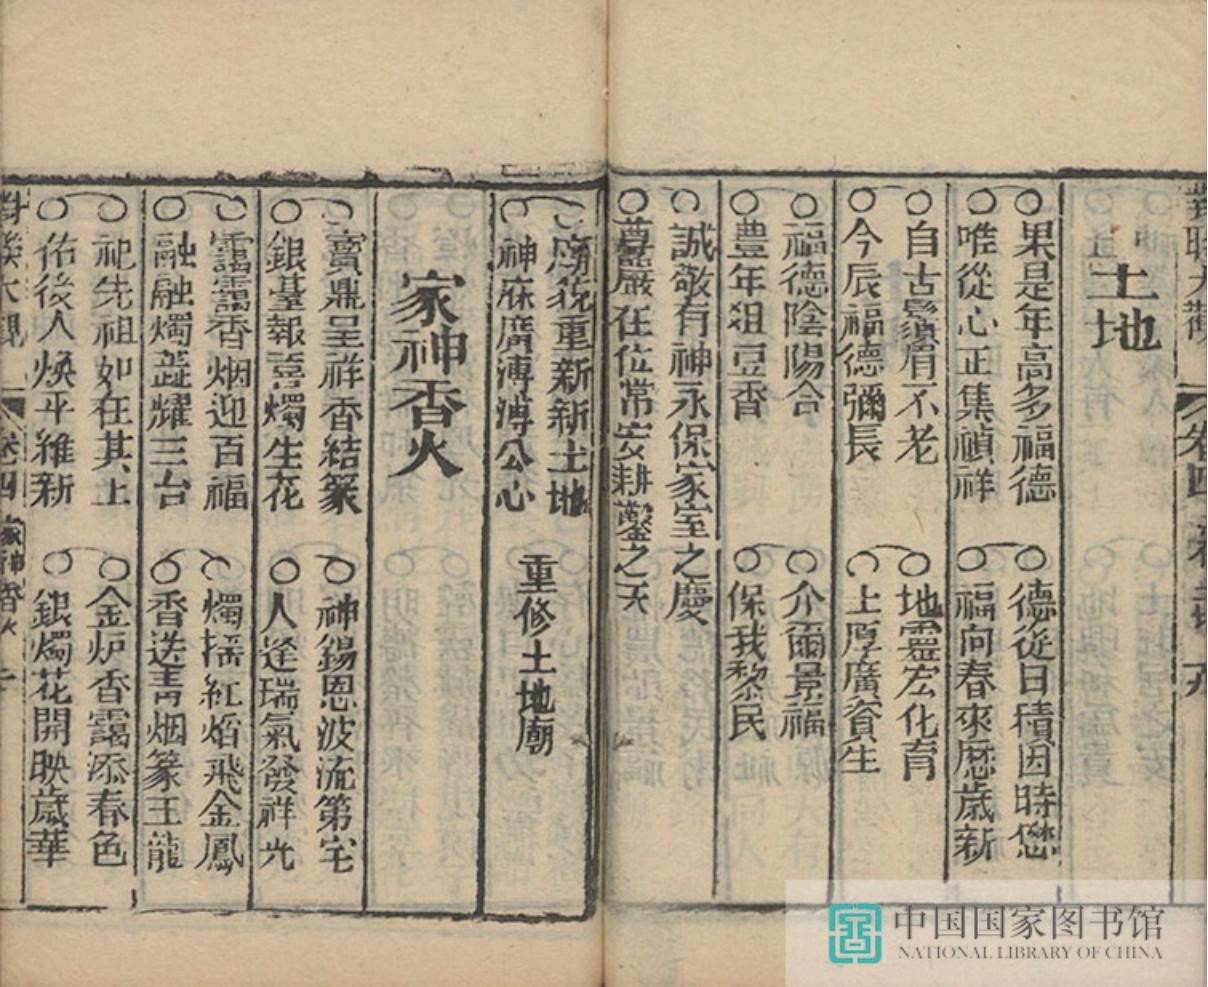 土地
果是年高多福德
唯從心正集禎祥
德從日積因時懋
福向春來歷歲新
自古鬚眉不老
今辰福德彌長
地靈宏化育
上厚廣資生
福德陰陽合
豐年俎豆香
介爾景福
保我黎民
誠敬有神永保家室之慶
尊嚴在位常安耕鑿之天
廟貌重新新土地
神庥廣溥溥公心
重修土地廟
家神香火
寶鼎呈祥香結篆
銀臺報喜燭生花
神錫恩波流第宅
人逢瑞氣發祥光
靄靄香烟迎百福
融融燭蕋耀三台
燭搖紅焰飛金鳳
香送青烟篆玉龍
祀先祖如在其上
佑後人煥乎維新
金炉香靄添春色
銀燭花開映歲華
卷四
家神香火
中国国家图书馆
NATIONAL LIBRARY OF CHINA